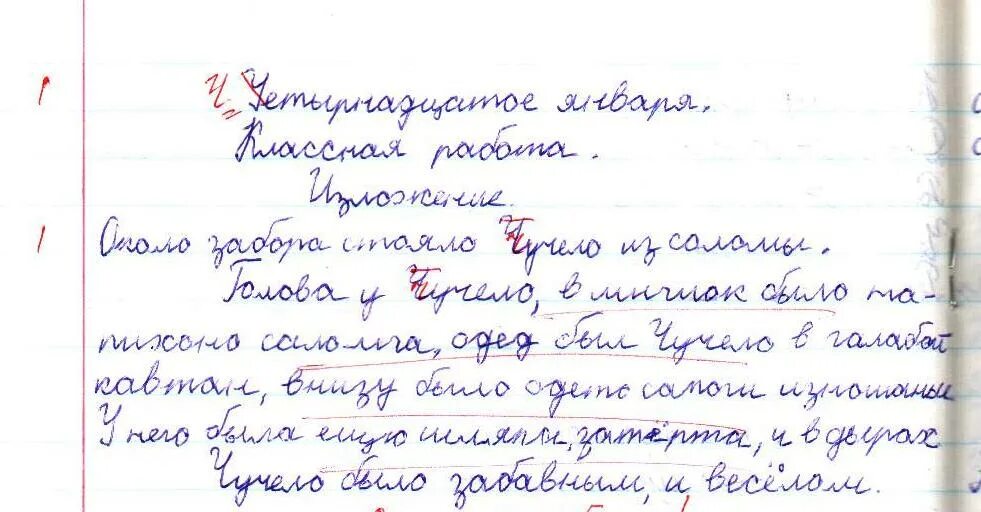 Четырнадцатое января.
Классная работа.
Изложение.
Около забора стояло Чучело из соломы.
Голова у Чучело, в было на-
пихано салома, одед был Чучело в галабой
кавтан, внизу было одето сапоги изношаные
У него была ещю шляпа, затёрта, и в дырах
Чучело было забавным, и весёлом.